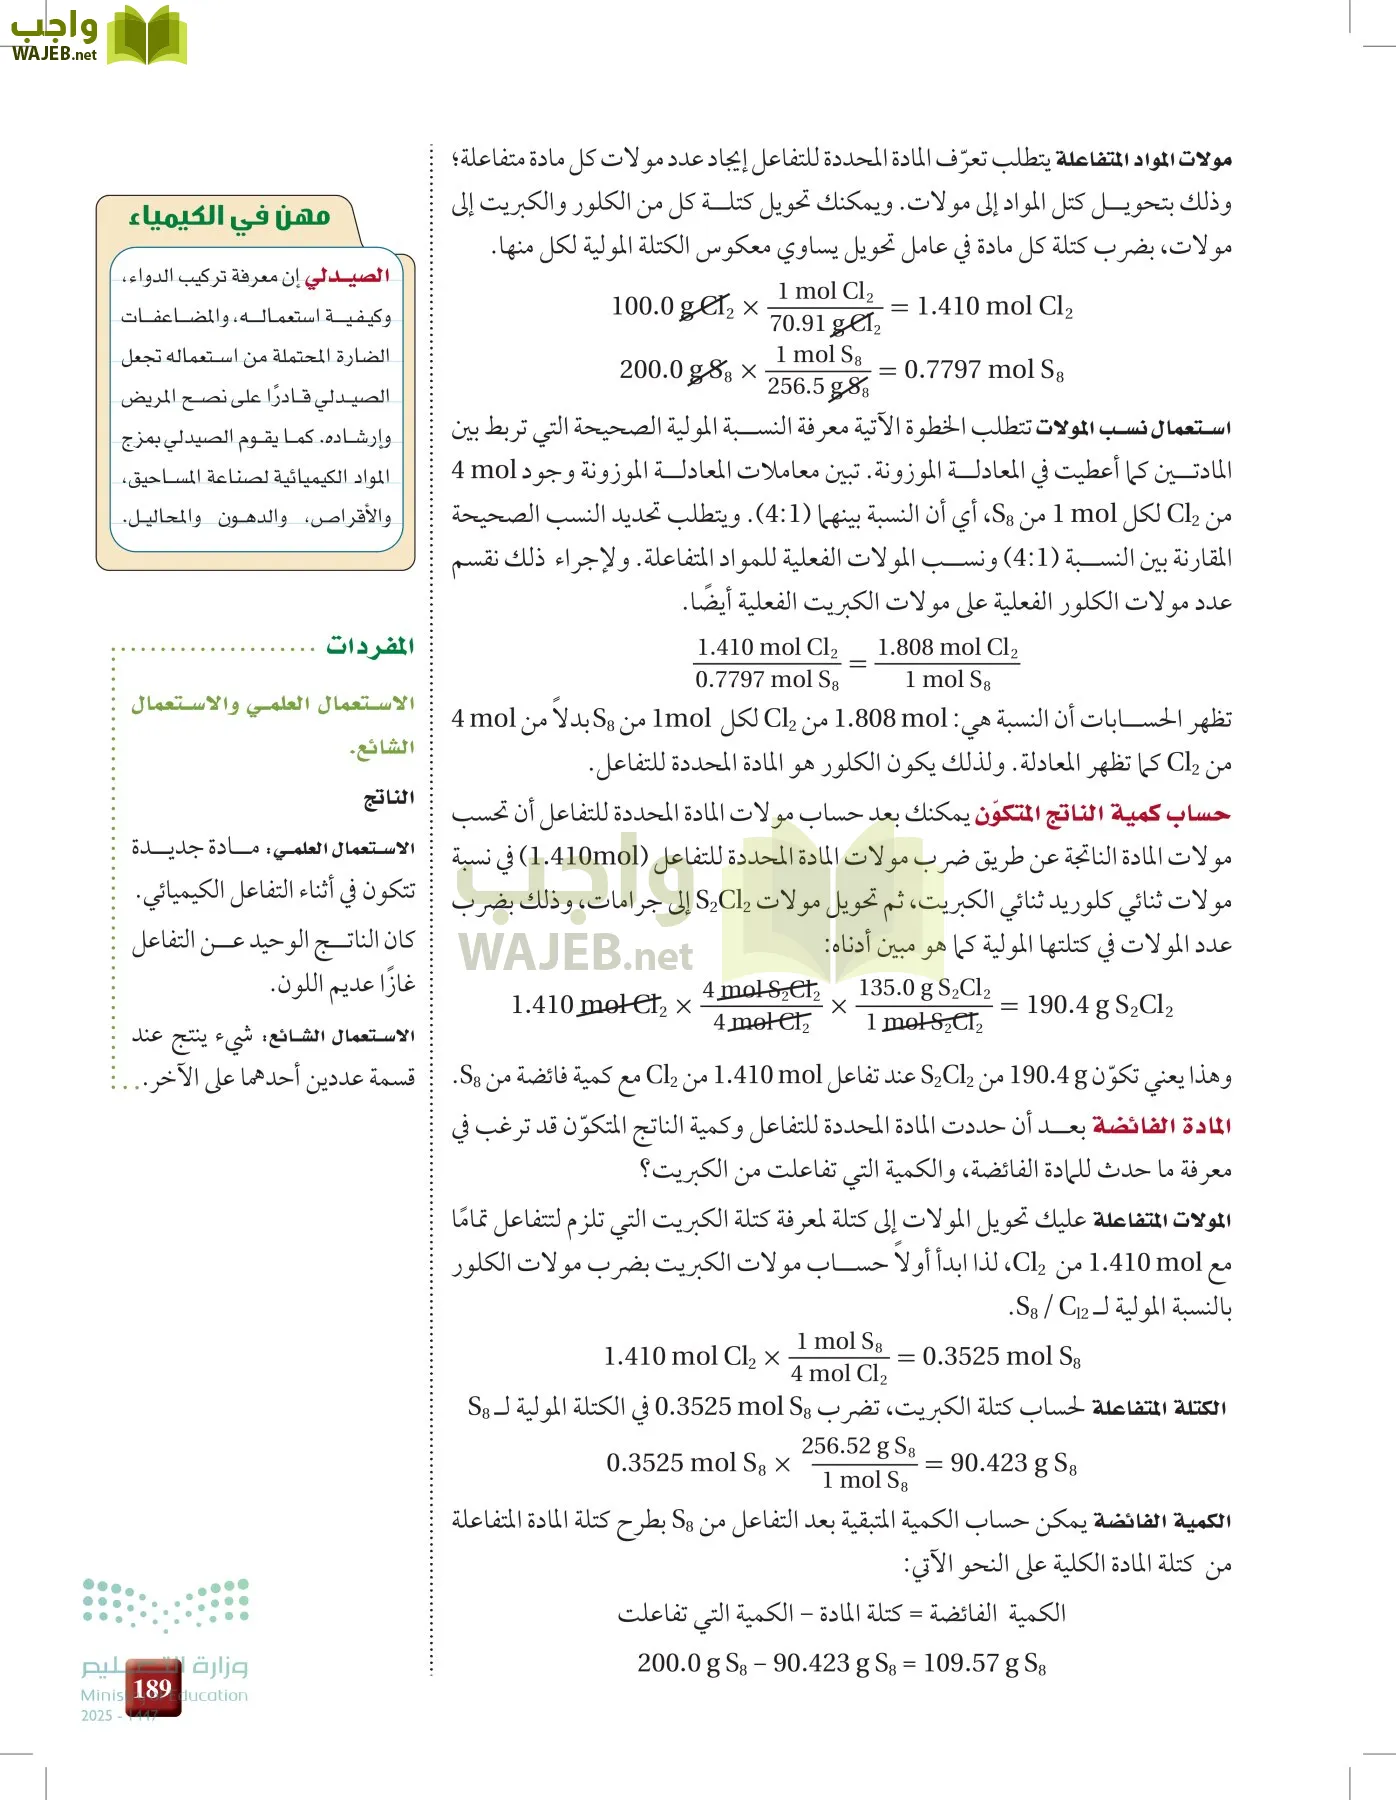 واجب
WAJEB.net
مولات المواد المتفاعلة يتطلب تعرّف المادة المحددة للتفاعل إيجاد عدد مولات كل مادة متفاعلة؛
وذلك بتحويل كتل المواد إلى مولات. ويمكنك تحويل كتلة كل من الكلور والكبريت إلى
مولات، بضرب كتلة كل مادة في عامل تحويل يساوي معكوس الكتلة المولية لكل منها.
100.0 g Cl₂ × 1 mol Cl₂ / 70.91 g Cl₂ = 1.410 mol Cl₂
200.0 g S₈ × 1 mol S₈ / 256.5 g S₈ = 0.7797 mol S₈
استعمال نسب المولات تتطلب الخطوة الآتية معرفة النسبة المولية الصحيحة التي تربط بين
المادتين كما أعطيت في المعادلة الموزونة. تبين معاملات المعادلة الموزونة وجود 4 mol
من Cl₂ لكل 1 mol من S₈، أي أن النسبة بينهما (4:1). ويتطلب تحديد النسب الصحيحة
المقارنة بين النسبة (4:1) ونسب المولات الفعلية للمواد المتفاعلة. ولإجراء ذلك نقسم
عدد مولات الكلور الفعلية على مولات الكبريت الفعلية أيضًا.
1.410 mol Cl₂ / 0.7797 mol S₈ = 1.808 mol Cl₂ / 1 mol S₈
تظهر الحسابات أن النسبة هي: 1.808 mol من Cl₂ لكل 1mol من S₈ بدلاً من 4 mol
من Cl₂ كما تظهر المعادلة. ولذلك يكون الكلور هو المادة المحددة للتفاعل.
حساب كمية الناتج المتكوّن يمكنك بعد حساب مولات المادة المحددة للتفاعل أن تحسب
مولات المادة الناتجة عن طريق ضرب مولات المادة المحددة للتفاعل (1.410mol) في نسبة
مولات ثنائي كلوريد ثنائي الكبريت، ثم تحويل مولات S₂Cl₂ إلى جرامات، وذلك بضرب
عدد المولات في كتلتها المولية كما هو مبين أدناه:
1.410 mol Cl₂ × 4 mol S₂Cl₂ / 4 mol Cl₂ × 135.0 g S₂Cl₂ / 1 mol S₂Cl₂ = 190.4 g S₂Cl₂
وهذا يعني تكوّن 190.4 g من S₂Cl₂ عند تفاعل 1.410 mol من Cl₂ مع كمية فائضة من S₈.
المادة الفائضة بعد أن حددت المادة المحددة للتفاعل وكمية الناتج المتكوّن قد ترغب في
معرفة ما حدث للمادة الفائضة، والكمية التي تفاعلت من الكبريت؟
المولات المتفاعلة عليك تحويل المولات إلى كتلة لمعرفة كتلة الكبريت التي تلزم لتتفاعل تمامًا
مع 1.410 mol من Cl₂، لذا ابدأ أولاً حساب مولات الكبريت بضرب مولات الكلور
بالنسبة المولية لـ S₈ / Cl₂.
1.410 mol Cl₂ × 1 mol S₈ / 4 mol Cl₂ = 0.3525 mol S₈
الكتلة المتفاعلة لحساب كتلة الكبريت، تضرب 0.3525 mol S₈ في الكتلة المولية لـ S₈
0.3525 mol S₈ × 256.52 g S₈ / 1 mol S₈ = 90.423 g S₈
الكمية الفائضة يمكن حساب الكمية المتبقية بعد التفاعل من S₈ بطرح كتلة المادة المتفاعلة
من كتلة المادة الكلية على النحو الآتي:
الكمية الفائضة = كتلة المادة – الكمية التي تفاعلت
200.0 g S₈ – 90.423 g S₈ = 109.57 g S₈
مهن في الكيمياء
الصيدلي إن معرفة تركيب الدواء،
وكيفية استعماله، والمضاعفات
الضارة المحتملة من استعماله تجعل
الصيدلي قادرًا على نصح المريض
وإرشاده. كما يقوم الصيدلي بمزج
المواد الكيميائية لصناعة المساحيق،
والأقراص، والدهون والمحاليل.
المفردات
الاستعمال العلمي والاستعمال
الشائع.
الناتج
الاستعمال العلمي: مادة جديدة
تتكون في أثناء التفاعل الكيميائي.
كان الناتج الوحيد عن التفاعل
غازًا عديم اللون.
الاستعمال الشائع: شيء ينتج عند
قسمة عددين أحدهما على الآخر.
واجب
WAJEB.net
وزارة التعليم
Ministry of Education
2025 - 1447
189